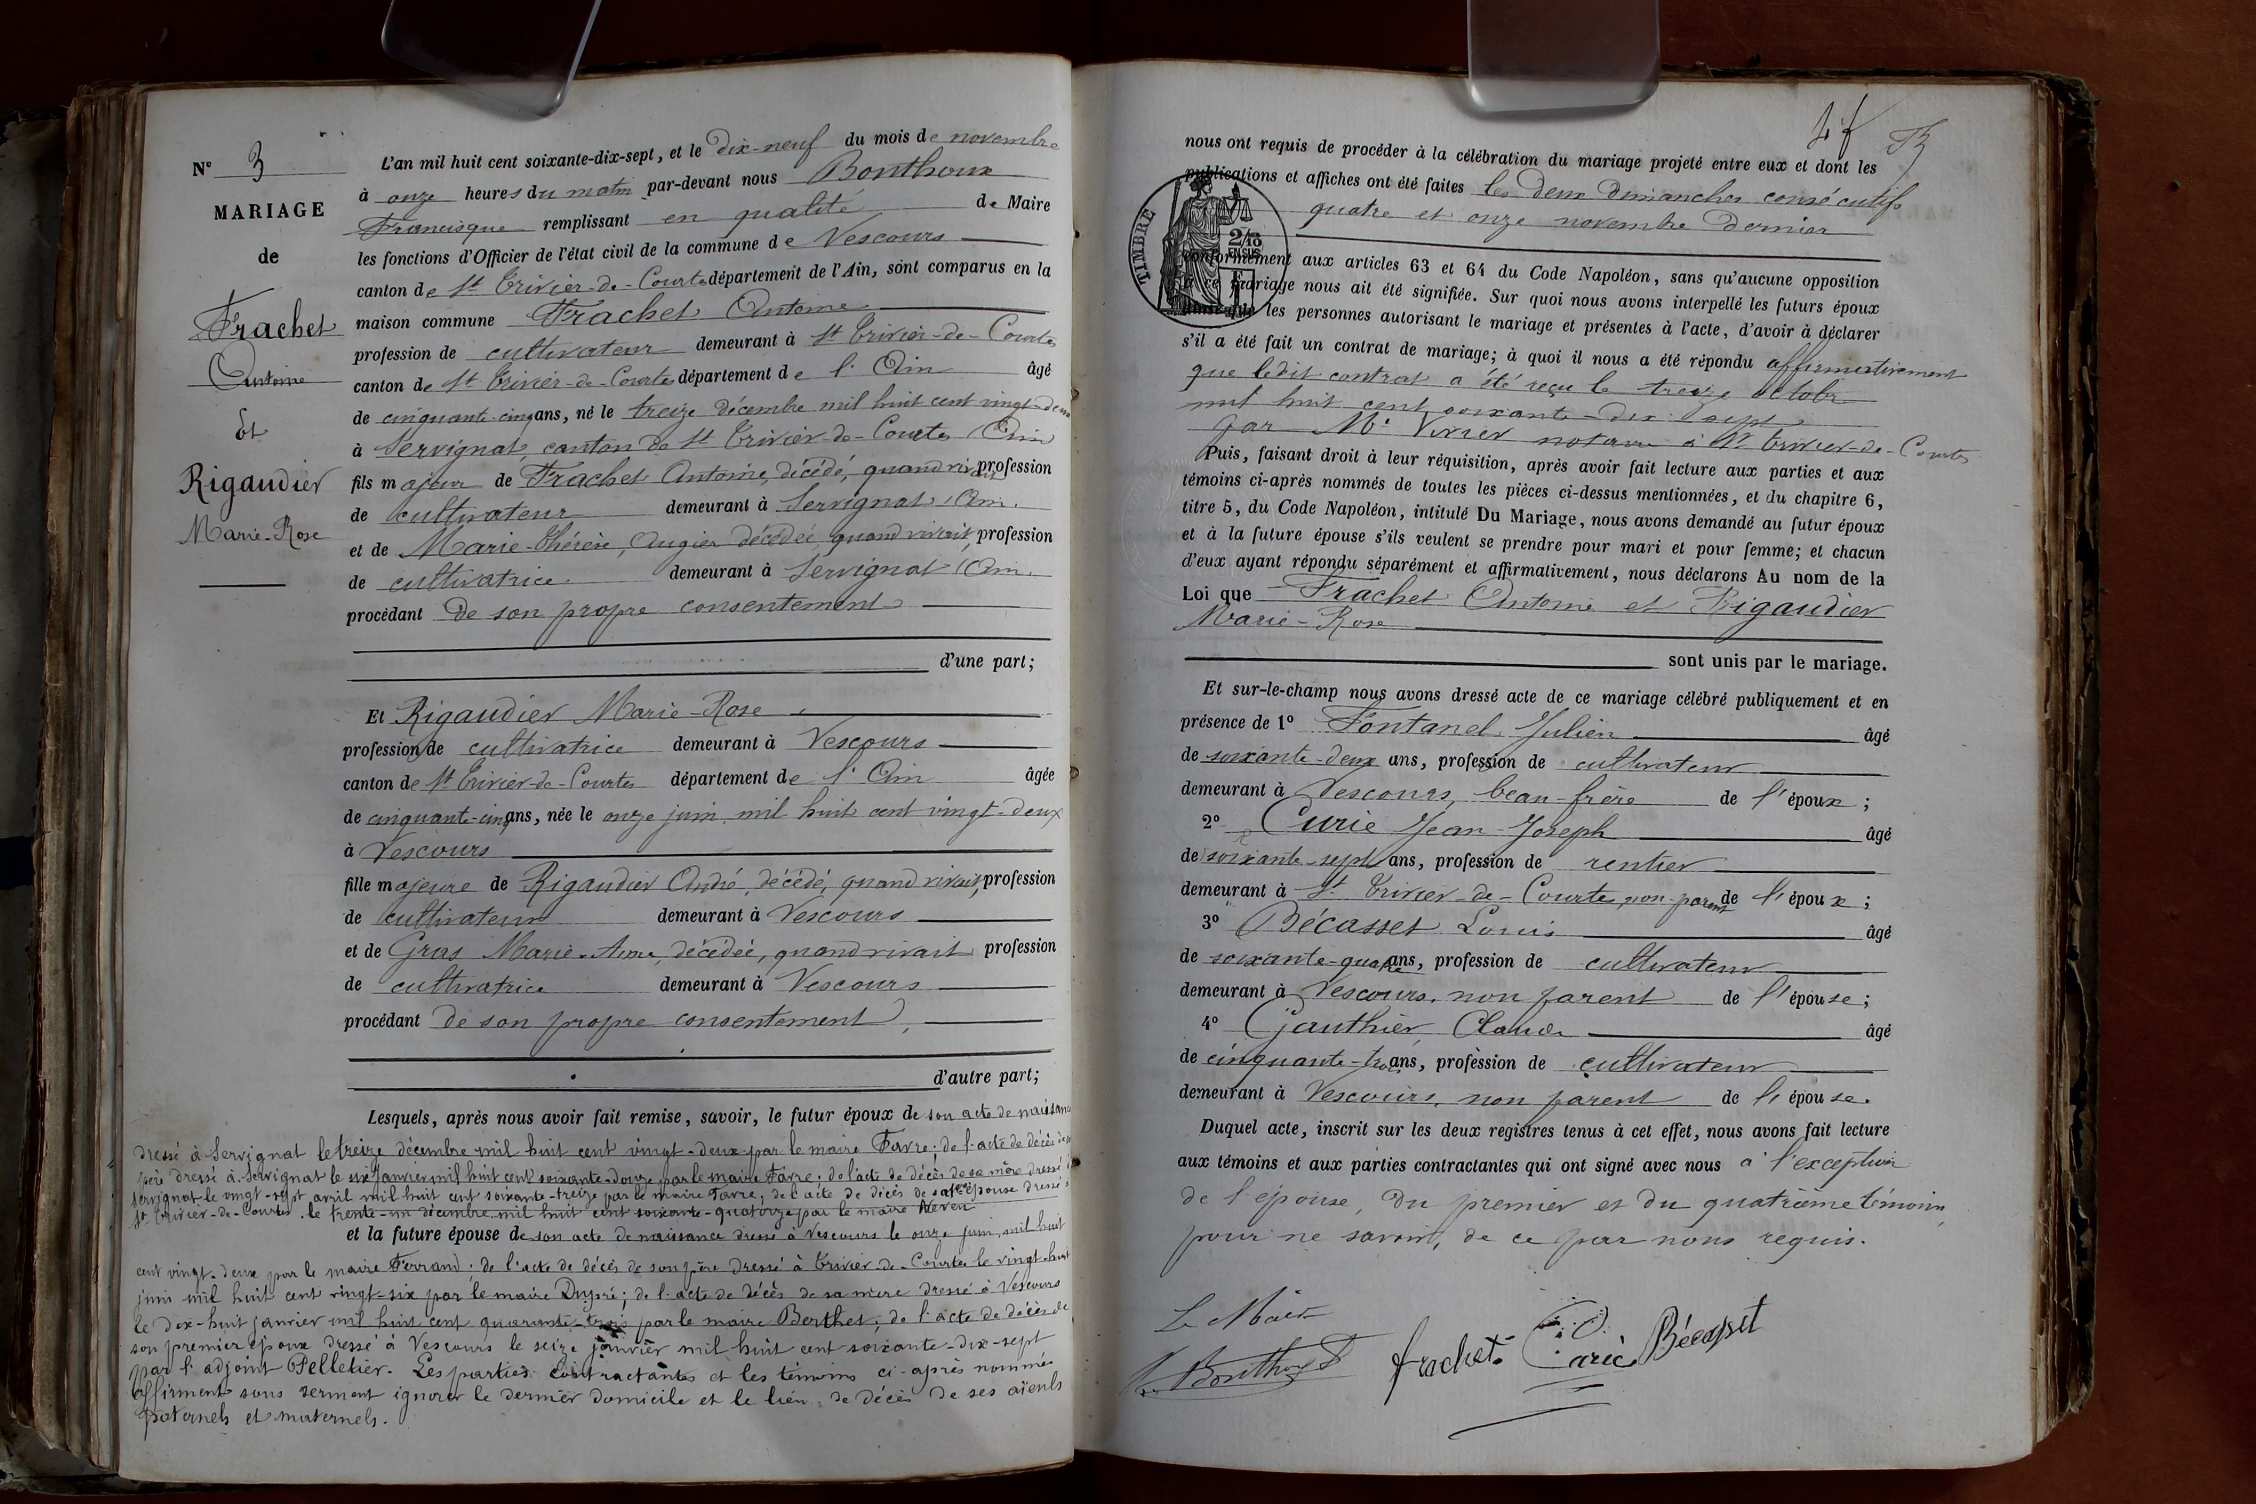 N° 3
MARIAGE
de
Frachet
Antoine
Et
Rigaudier
Marie-Rose
L'an mil huit cent soixante-dix-sept, et le dix-neuf du mois de novembre
à onze heures du matin par-devant nous Bonthoux
Francisque remplissant en qualité de Maire
les fonctions d'Officier de l'état civil de la commune de Vescours
canton de St Trivier-de-Courtes département de l'Ain, sont comparus en la
maison commune Frachet Antoine
profession de cultivateur demeurant à St Trivier-de-Courtes
canton de St Trivier-de-Courtes département de l'Ain âgé
de cinquante-cinq ans, né le treize décembre mil huit cent vingt-deux
à Servignat, canton de St Trivier-de-Courtes (Ain
fils majeur de Frachet Antoine, décédé, quand vivait profession
de cultivateur demeurant à Servignat (Ain.
et de Marie-Thérèse, Augier décédée, quand vivait, profession
de cultivatrice demeurant à Servignat (Ain.
procédant de son propre consentement
d'une part;
Et Rigaudier Marie-Rose
profession de cultivatrice demeurant à Vescours
canton de St Trivier-de-Courtes département de l'Ain âgée
de cinquante-cinq ans, née le onze juin mil huit cent vingt-deux
à Vescours
fille majeure de Rigaudier André, décédé, quand vivait, profession
de cultivateur demeurant à Vescours
et de Gras Marie-Anne, décédée, quand vivait profession
de cultivatrice demeurant à Vescours
procédant de son propre consentement,
d'autre part;
Lesquels, après nous avoir fait remise, savoir, le futur époux de son acte de naissance
dressé à Servignat le treize décembre mil huit cent vingt-deux par le maire Favre; de l'acte de décès de
père dressé à Servignat le six janvier mil huit cent soixante-douze par le maire Favre; de l'acte de décès de sa mère dressé à
Servignat le vingt-sept avril mil huit cent soixante-treize par le maire Favre; de l'acte de décès de sa 1ère épouse dressé à
St Trivier-de-Courtes le trente-un décembre mil huit cent soixante-quatorze par le maire Neveu
et la future épouse de son acte de naissance dressé à Vescours le onze juin mil huit
cent vingt-deux par le maire Ferrand; de l'acte de décès de son père dressé à Trivier-de-Courtes le vingt-huit
juin mil huit cent vingt-six par le maire Dupré; de l'acte de décès de sa mère dressé à Vescours
le dix-huit janvier mil huit cent quarante-trois par le maire Berthet; de l'acte de décès de
son premier époux dressé à Vescours le seize janvier mil huit cent soixante-dix-sept
par l'adjoint Pelletier. Les parties contractantes et les témoins ci-après nommés
affirment sous serment ignorer le dernier domicile et le lieu de décès de ses aïeuls
paternels et maternels.
nous ont requis de procéder à la célébration du mariage projeté entre eux et dont les
publications et affiches ont été faites les deux dimanches consécutifs
quatre et onze novembre dernier
TIMBRE
2/10
EN SUS
conformément aux articles 63 et 64 du Code Napoléon, sans qu'aucune opposition
à ce mariage nous ait été signifiée. Sur quoi nous avons interpellé les futurs époux
ainsi que les personnes autorisant le mariage et présentes à l'acte, d'avoir à déclarer
s'il a été fait un contrat de mariage; à quoi il nous a été répondu affirmativement
que ledit contrat a été reçu le treize octobre
mil huit cent soixante-dix-sept
par Me Vivier notaire à St Trivier-de-Courtes
Puis, faisant droit à leur réquisition, après avoir fait lecture aux parties et aux
témoins ci-après nommés de toutes les pièces ci-dessus mentionnées, et du chapitre 6,
titre 5, du Code Napoléon, intitulé Du Mariage, nous avons demandé au futur époux
et à la future épouse s'ils veulent se prendre pour mari et pour femme; et chacun
d'eux ayant répondu séparément et affirmativement, nous déclarons Au nom de la
Loi que Frachet Antoine et Rigaudier
Marie-Rose
sont unis par le mariage.
Et sur-le-champ nous avons dressé acte de ce mariage célébré publiquement et en
présence de 1° Fontanel Julien âgé
de soixante-deux ans, profession de cultivateur
demeurant à Vescours, beau-frère de l'époux;
2° Curie Jean-Joseph âgé
de soixante-sept ans, profession de rentier
demeurant à St Trivier-de-Courtes, non parent de l'époux;
3° Bécasset Louis âgé
de soixante-quatre ans, profession de cultivateur
demeurant à Vescours, non parent de l'épouse;
4° Gauthier Claude âgé
de cinquante-trois ans, profession de cultivateur
demeurant à Vescours, non parent de l'épouse.
Duquel acte, inscrit sur les deux registres tenus à cet effet, nous avons fait lecture
aux témoins et aux parties contractantes qui ont signé avec nous à l'exception
de l'épouse, du premier et du quatrième témoin,
pour ne savoir, de ce par nous requis.
Le Maire
Bonthoux frachet Curie Bécasset